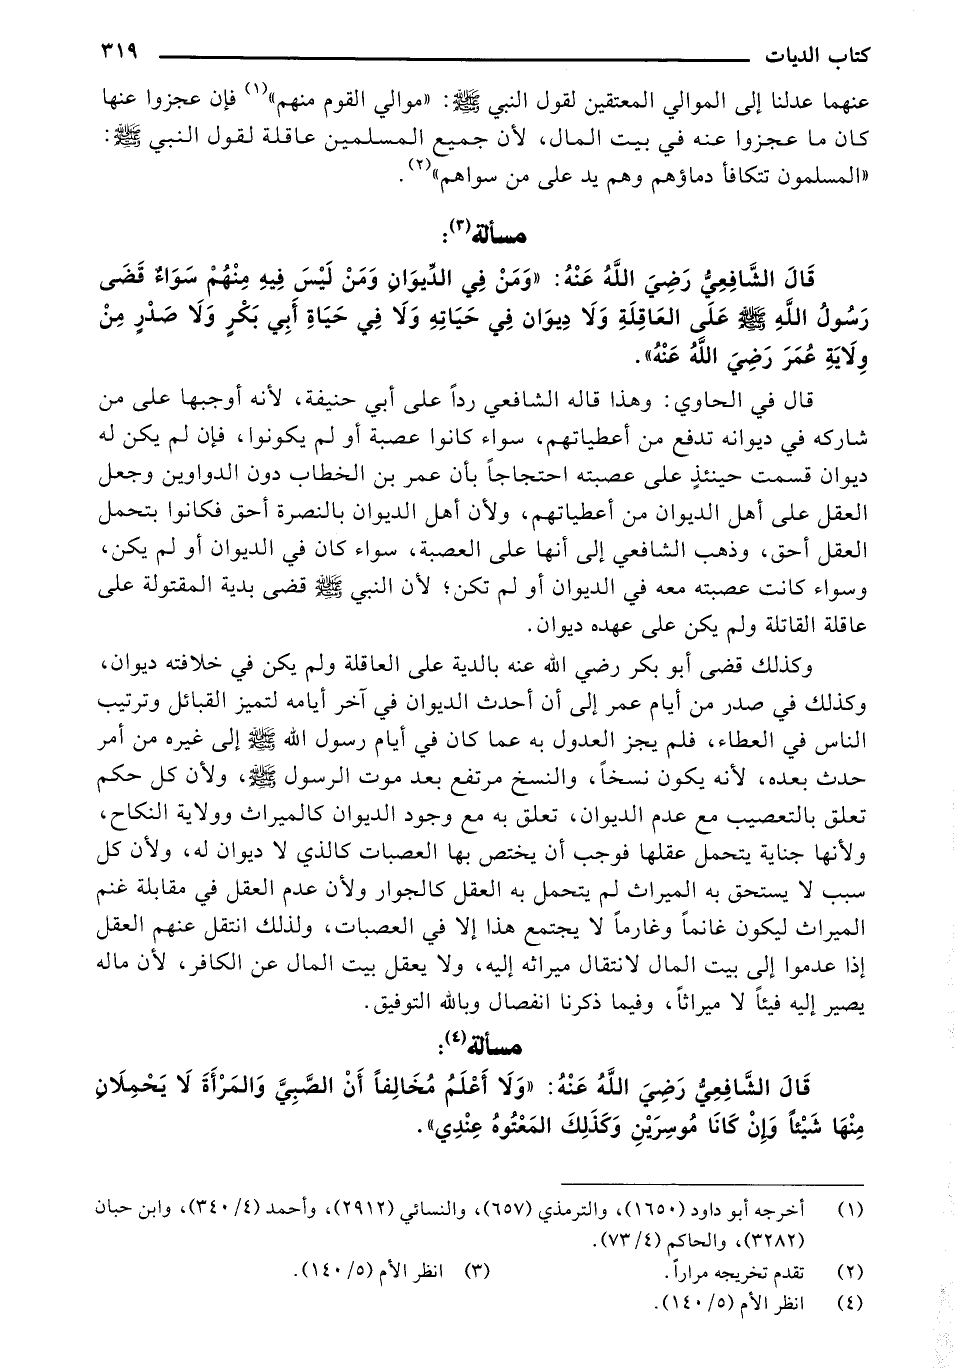 كتاب الديات ٣١٩
عنهما عدلنا إلى الموالي المعتقين لقول النبي ﷺ: «موالي القوم منهم»(١) فإن عجزوا عنها
كان ما عجزوا عنه في بيت المال، لأن جميع المسلمين عاقلة لقول النبي ﷺ:
«المسلمون تتكافأ دماؤهم وهم يد على من سواهم»(٢).
مسألة(٣):
قَالَ الشَّافِعِيُّ رَضِيَ اللَّهُ عَنْهُ: «وَمَنْ فِي الدِّيوَانِ وَمَنْ لَيْسَ فِيهِ مِنْهُمْ سَوَاءٌ قَضَى
رَسُولُ اللَّهِ ﷺ عَلَى العَاقِلَةِ وَلَا دِيوَان فِي حَيَاتِهِ وَلَا فِي حَيَاةِ أَبِي بَكْرٍ وَلَا صَدْرٍ مِنْ
وِلَايَةِ عُمَرَ رَضِيَ اللَّهُ عَنْهُ».
قال في الحاوي: وهذا قاله الشافعي رداً على أبي حنيفة، لأنه أوجبها على من
شاركه في ديوانه تدفع من أعطياتهم، سواء كانوا عصبة أو لم يكونوا، فإن لم يكن له
ديوان قسمت حينئذٍ على عصبته احتجاجاً بأن عمر بن الخطاب دون الدواوين وجعل
العقل على أهل الديوان من أعطياتهم، ولأن أهل الديوان بالنصرة أحق فكانوا بتحمل
العقل أحق، وذهب الشافعي إلى أنها على العصبة، سواء كان في الديوان أو لم يكن،
وسواء كانت عصبته معه في الديوان أو لم تكن؛ لأن النبي ﷺ قضى بدية المقتولة على
عاقلة القاتلة ولم يكن على عهده ديوان.
وكذلك قضى أبو بكر رضي الله عنه بالدية على العاقلة ولم يكن في خلافته ديوان،
وكذلك في صدر من أيام عمر إلى أن أحدث الديوان في آخر أيامه لتميز القبائل وترتيب
الناس في العطاء، فلم يجز العدول به عما كان في أيام رسول الله ﷺ إلى غيره من أمر
حدث بعده، لأنه يكون نسخاً، والنسخ مرتفع بعد موت الرسول ﷺ، ولأن كل حكم
تعلق بالتعصيب مع عدم الديوان، تعلق به مع وجود الديوان كالميراث وولاية النكاح،
ولأنها جناية يتحمل عقلها فوجب أن يختص بها العصبات كالذي لا ديوان له، ولأن كل
سبب لا يستحق به الميراث لم يتحمل به العقل كالجوار ولأن عدم العقل في مقابلة غنم
الميراث ليكون غانماً وغارماً لا يجتمع هذا إلا في العصبات، ولذلك انتقل عنهم العقل
إذا عدموا إلى بيت المال لانتقال ميراثه إليه، ولا يعقل بيت المال عن الكافر، لأن ماله
يصير إليه فيئاً لا ميراثاً، وفيما ذكرنا انفصال وبالله التوفيق.
مسألة(٤):
قَالَ الشَّافِعِيُّ رَضِيَ اللَّهُ عَنْهُ: «وَلَا أَعْلَمُ مُخَالِفاً أَنْ الصَّبِيَّ وَالمَرْأَةَ لَا يَحْمِلَانِ
مِنْهَا شَيْئاً وَإِنْ كَانَا مُوسِرَيْنِ وَكَذَلِكَ المَعْتُوهُ عِنْدِي».
(١) أخرجه أبو داود (١٦٥٠)، والترمذي (٦٥٧)، والنسائي (٢٩١٢)، وأحمد (٤/ ٣٤٠)، وابن حبان
(٣٢٨٢)، والحاكم (٤/ ٧٣).
(٢) تقدم تخريجه مراراً. (٣) انظر الأم (٥/ ١٤٠).
(٤) انظر الأم (٥/ ١٤٠).